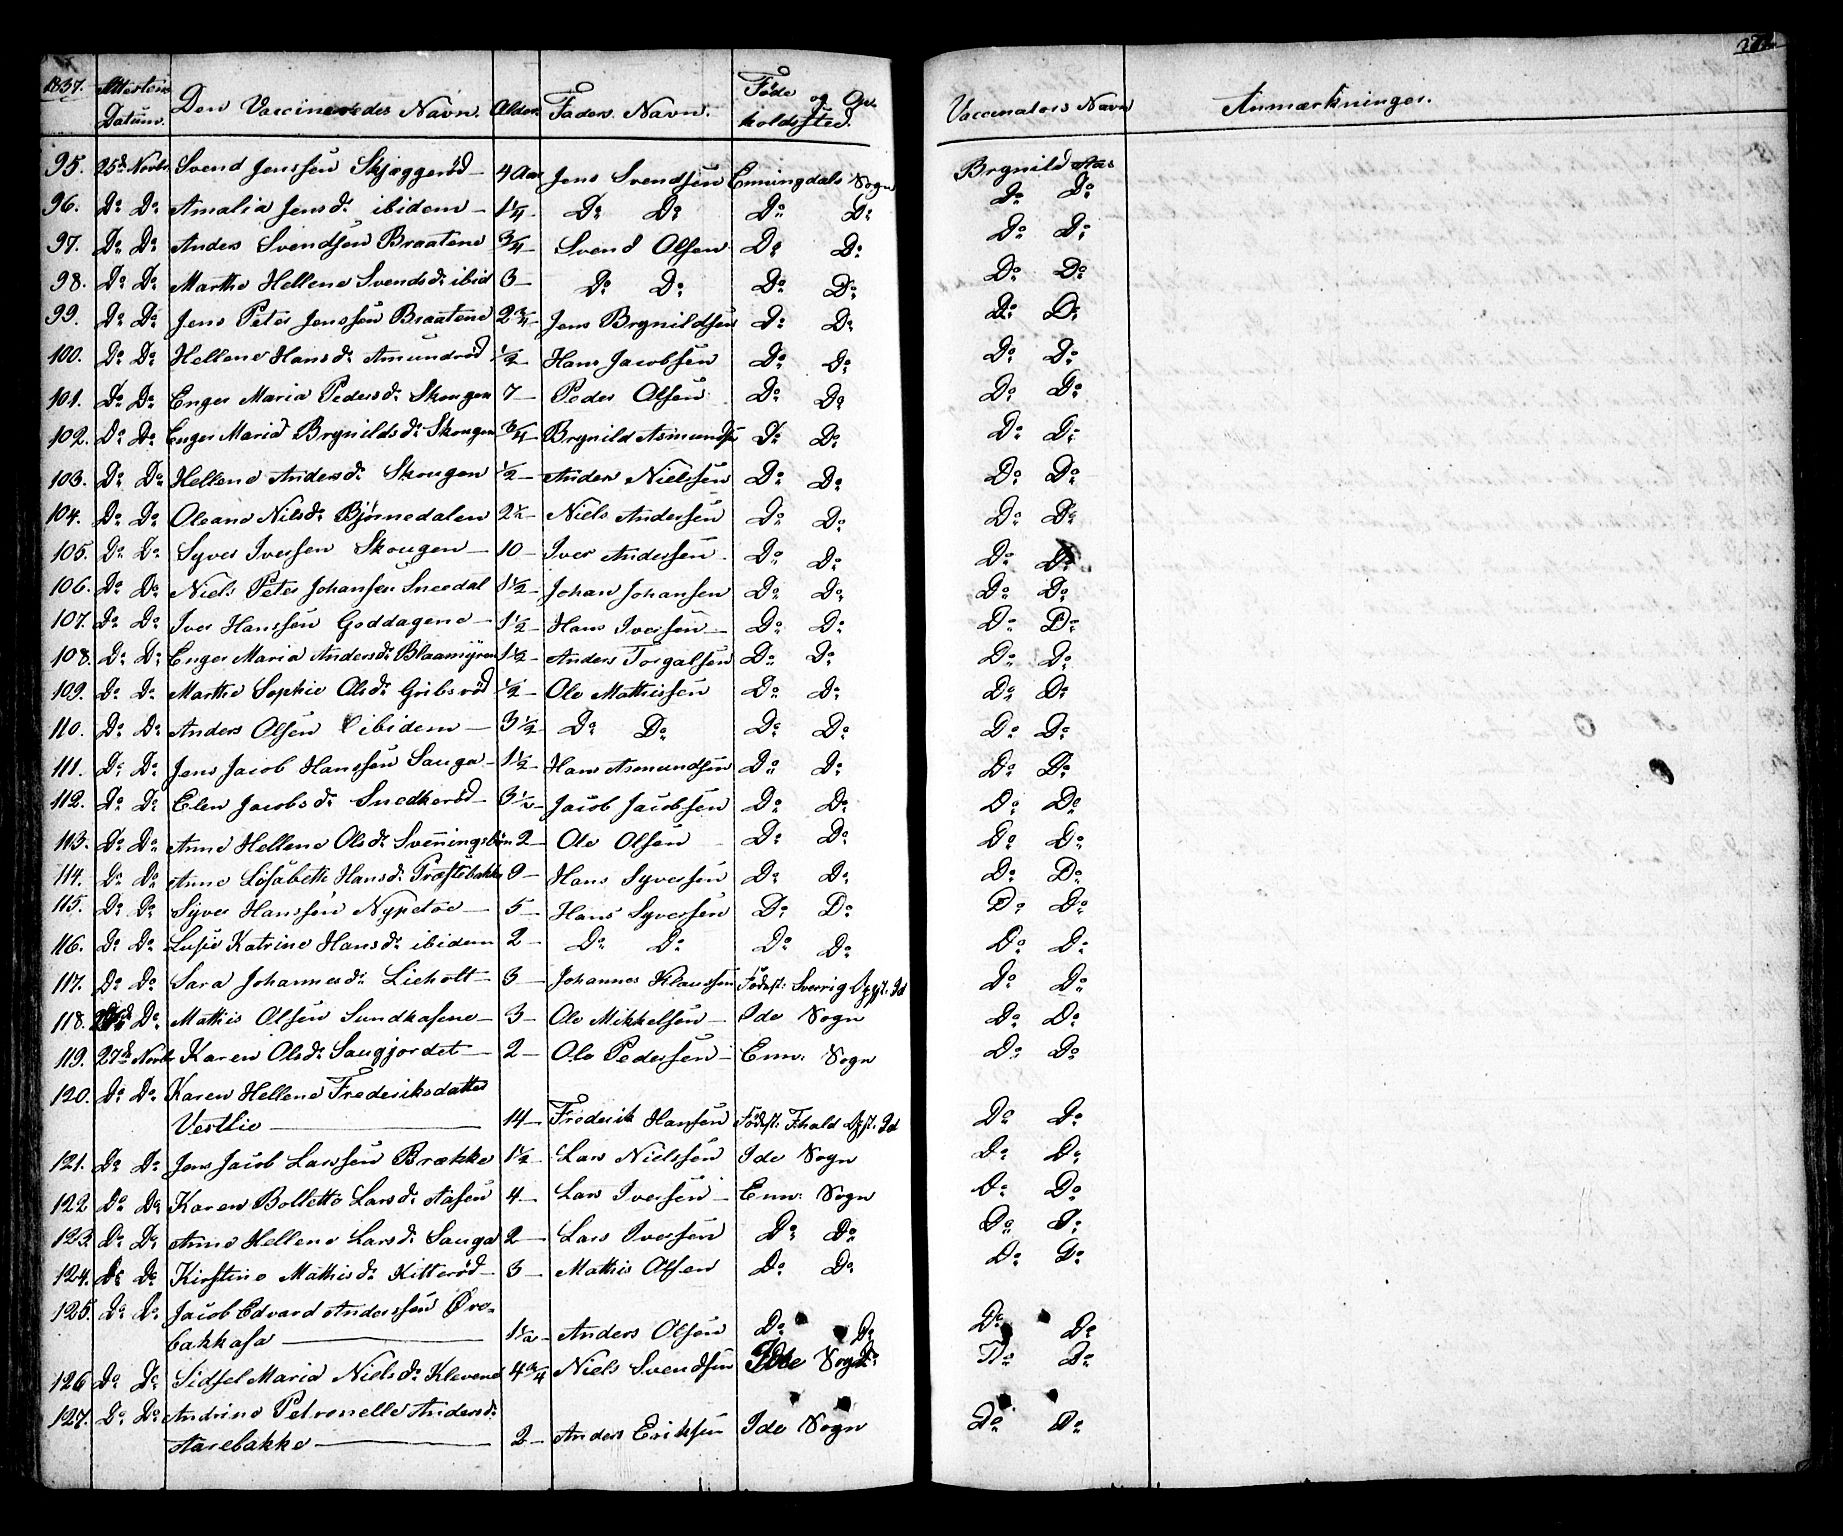 1837. Attestens Datum. Den Vaccineredes Navn. Alder. Faders Navn. Føde og Op-holdssted. Vaccinators Navn Anmærkninger.
95. 25d Novbr Svend Jenssen Skjæggerød 4 Aar Jens Svendsen Enningdals Sogn Brynild Aas
96. Do Do Amalia Jensdr ibidem 1 1/4 Do Do Do Do Do Do
97. Do Do Anders Svendsen Braatene 3/4 Svend Olsen Do Do Do Do
98. Do Do Marthe Hellene Svendsdr ibid 3 Do Do Do Do Do Do
99. Do Do Jens Peter Jenssen Braatene 2 3/4 Jens Brynildsen Do Do Do Do
100. Do Do Hellene Hansdr Amundrød 1/2 Hans Jacobsen Do Do Do Do
101. Do Do Enger Maria Pedersdr Skougen 7 Peder Olsen Do Do Do Do
102. Do Do Enger Maria Brynildsdr Skougen 3/4 Brynild Asmunds Do Do Do Do
103. Do Do Hellene Andersdr Skougen 1/2 Anders Nielssen Do Do Do Do
104. Do Do Oleane Nilsdr Bjørnedalen 2 1/2 Niels Anderssen Do Do Do Do
105. Do Do Syver Iversen Skougen 10 Iver Anderssen Do Do Do Do
106. Do Do Niels Peter Johansen Sneedal 1 1/2 Johan Johansen Do Do Do Do
107. Do Do Iver Hanssen Goddagene 1 1/2 Hans Iversen Do Do Do Do
108. Do Do Enger Maria Andersdr Blaamyren 1 1/2 Anders Torgalsen Do Do Do Do
109. Do Do Marthe Sophie Olsdr Gribsrød 1/2 Ole Mathissen Do Do Do Do
110. Do Do Anders Olsen ibidem 3 1/2 Do Do Do Do Do Do
111. Do Do Jens Jacob Hanssen Sauga 1 1/2 Hans Asmundsen Do Do Do Do
112. Do Do Elen Jacobsdr Snedkerød 3 1/2 Jacob Jacobsen Do Do Do Do
113. Do Do Anne Hellene Olsdr Svenningsbøn 2 Ole Olsen Do Do Do Do
114. Do Do Anne Lisabeth Hansdr Præstebakke 9 Hans Syversen Do Do Do Do
115. Do Do Syver Hanssen Nypetøe 5 Hans Syversen Do Do Do Do
116. Do Do Lusie Katrine Hansdr ibidem 2 Do Do Do Do Do Do
117. Do Do Sara Johannesdr Lieholt 3 Johannes Klaussen Fødest: Sverrig Id Do Do
118. Do Mathis Olsen Sundkasene 3 Ole Mikkelsen Ide Sogn Do Do
119. 27d Novbr Karen Olsdr Saugjordet 2 Ole Pedersen Enn: Sogn Do Do
120. Do Do Karen Hellene Frederiksdatter
Vestlie 14 Frederik Hansen Fødest: Fhald Opst: Id Do Do
121. Do Do Jens Jacob Larssen Brække 1 1/2 Lars Nielssen Ide Sogn Do Do
122 Do Do Karen Bollette Larsdr Aasen 4 Lars Iversen Enn: Sogn Do Do
123. Do Do Anne Hellene Larsdr Sauga 2 Lars Iversen Do Do Do Do
124. Do Do Kirstine Mathisdr Kitterød 3 Mathis Olsen Do Do Do Do
125. Do Do Jacob Edvard Anderssen Øre-
bakkasa 1 1/2 Anders Olsen Do Do Do Do
126 Do Do Sidsel Maria Nielsdr Klevene 4 3/4 Niels Svendsen Ide Sogn Do Do
127. Do Do Andrine Petronelle Andersdr
Aarebakke 2 Anders Eriksen Ide Sogn Do Do